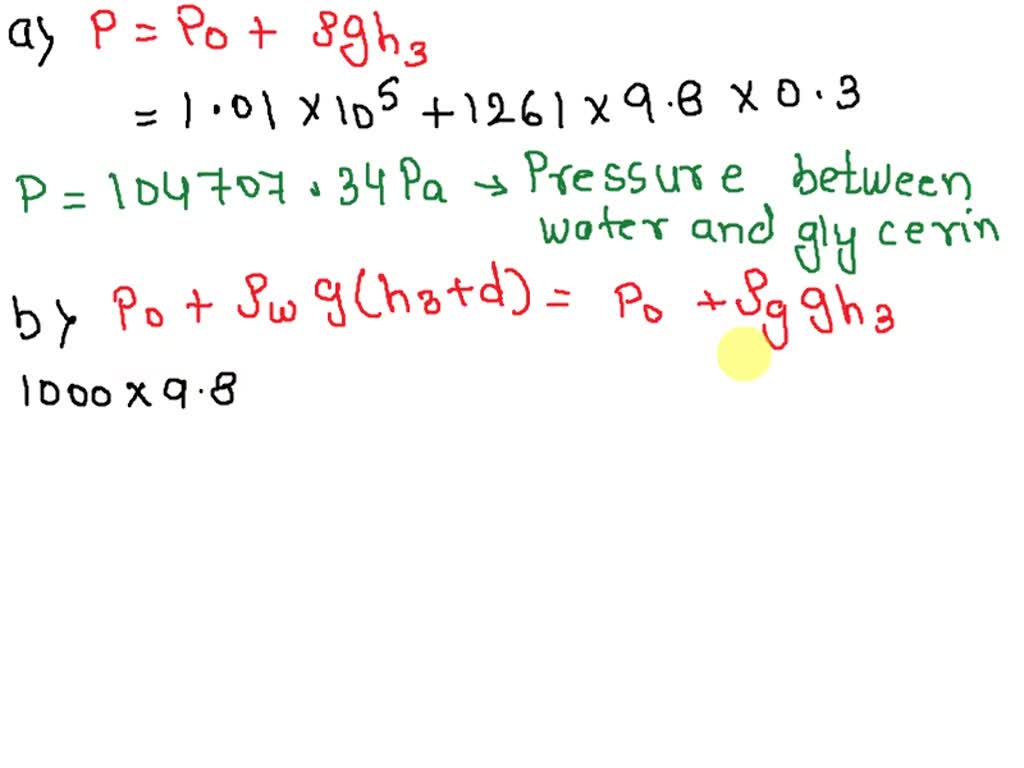 a) P = P0 + ρgh3
= 1.01 × 10^5 + 1261 × 9.8 × 0.3
P = 104707.34 Pa → Pressure between
water and glycerin
b) P0 + ρw g(h3+d) = P0 + ρg gh3
1000 × 9.8